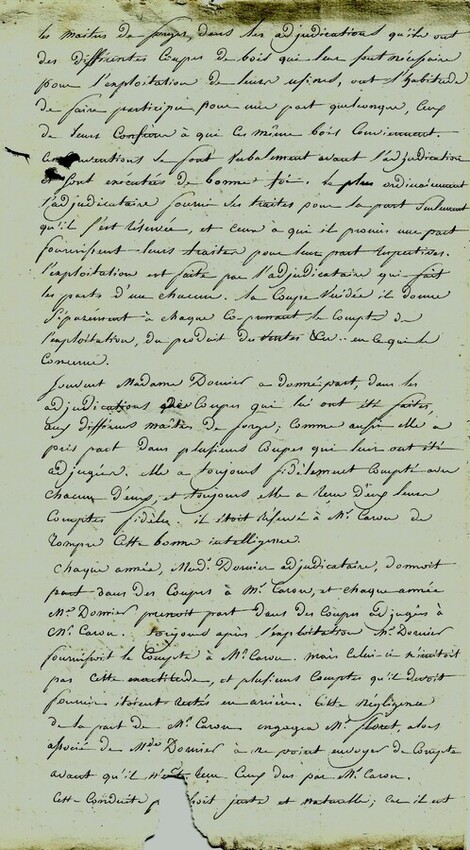 les maitres de forges, dans les adjudications qu'ils ont
des differentes Coupes de bois qui leur sont nécessaire
pour l'exploitation de leurs usines, ont l'habitude
de faire participer pour une part quelconque, Ceux
de leurs Confrere à qui Ces même bois Conviennent.
Ces Conventions Se font Verbalement avant l'adjudication
et Sont exécutées de bonne foi. le plus ordinairement
l'adjudicataire fournit Ses traites pour la part Seulement
qu'il S'est réservée, et Ceux à qui il promis une part
fournissent leurs traites pour leur part respectives.
l'exploitation est faite par l'adjudicataire qui fait
les parts d'un chacun. la Coupe Vuidée il donne
Séparément à chaque Co-prenant le Compte de
l'exploitation, du produit des Ventes &Ca.. en Ce qui le
Concerne.
Souvent Madame Dornier a donné part, dans les
adjudications des Coupes qui lui ont été faites,
aux différens maîtres de forge; Comme aussi elle a
pris part dans plusieurs Coupes qui leur ont été
adjugées. elle a toujours fidèlement Compté avec
chacun d'eux, et toujours elle a reçu d'eux leurs
Comptes fidèles. il étoit réservé à Mr. Caron de
rompre Cette bonne intelligence.
Chaque année, Made. Dornier adjudicataire, donnoit
part dans des Coupes à Mr. Caron, et chaque année
Me. Dornier prenoit part dans des Coupes adjugées à
Mr. Caron. Toujours après l'exploitation Me. Dornier
fournissoit le Compte à Mr. Caron. mais Celui-ci n'imitoit
pas Cette exactitude, et plusieurs Comptes qu'il devoit
fournir étoient restés en arrière. Cette négligence
de la part de Mr. Caron engagea Mr. floret, alors
associé de Mde Dornier à ne point envoyer de Compte
avant qu'il n'eûte reçu Ceux dus par Mr. Caron.
Cette Conduite juste et naturelle; Car il est